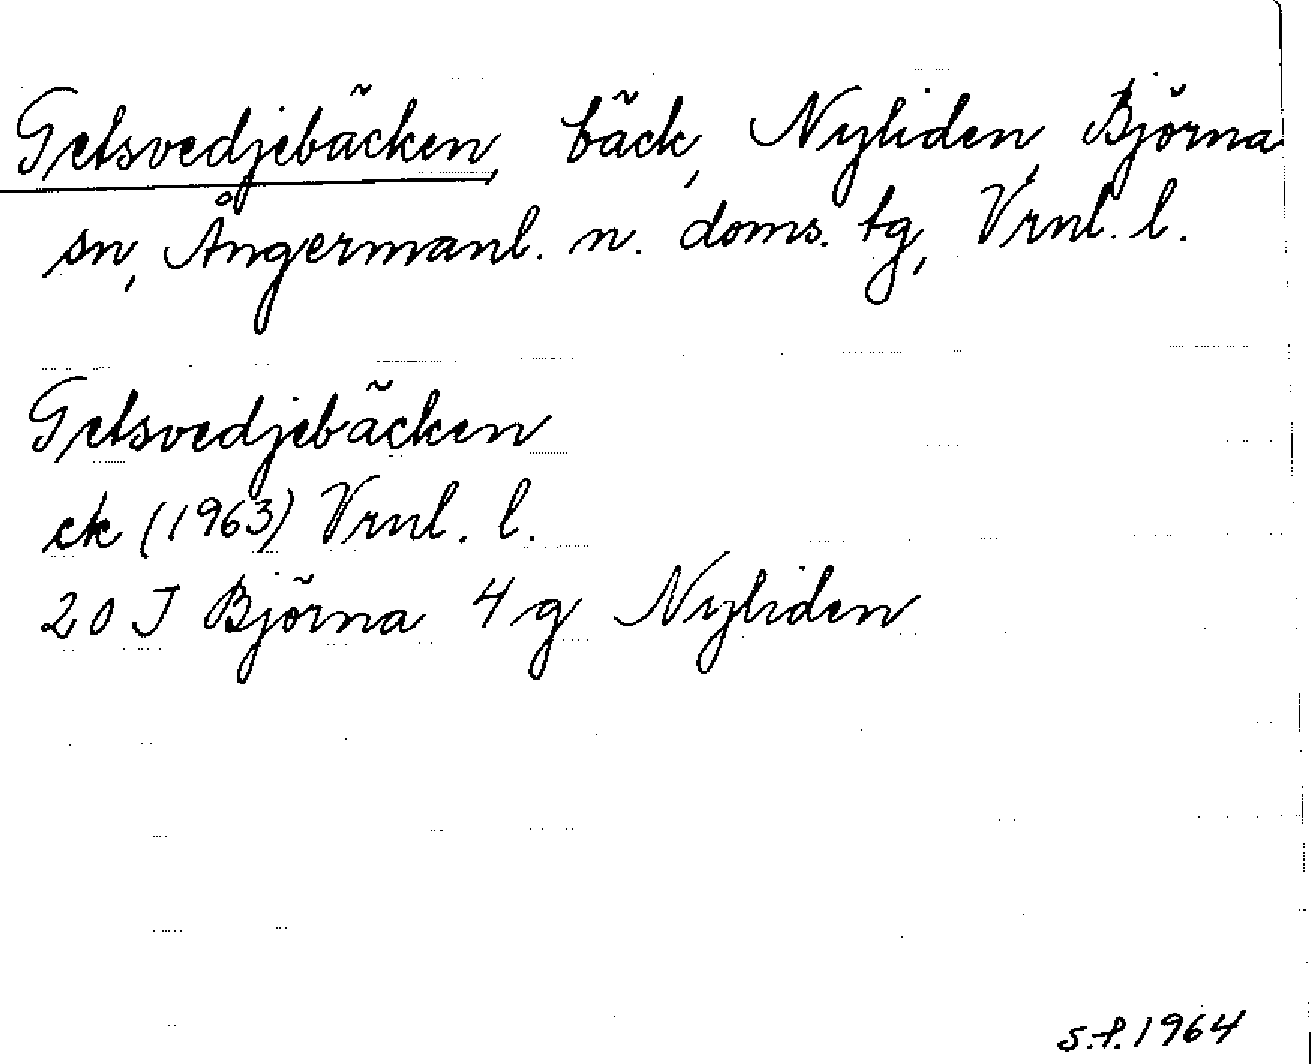 Getsvedjebäcken, bäck, Nyliden, Björna
sn, Ångermanl. n. doms. tg, Vrnl. l.
Getsvedjebäcken
ek (1963) Vrnl. l.
20 J Björna 4 g Nyliden
S.P. 1964